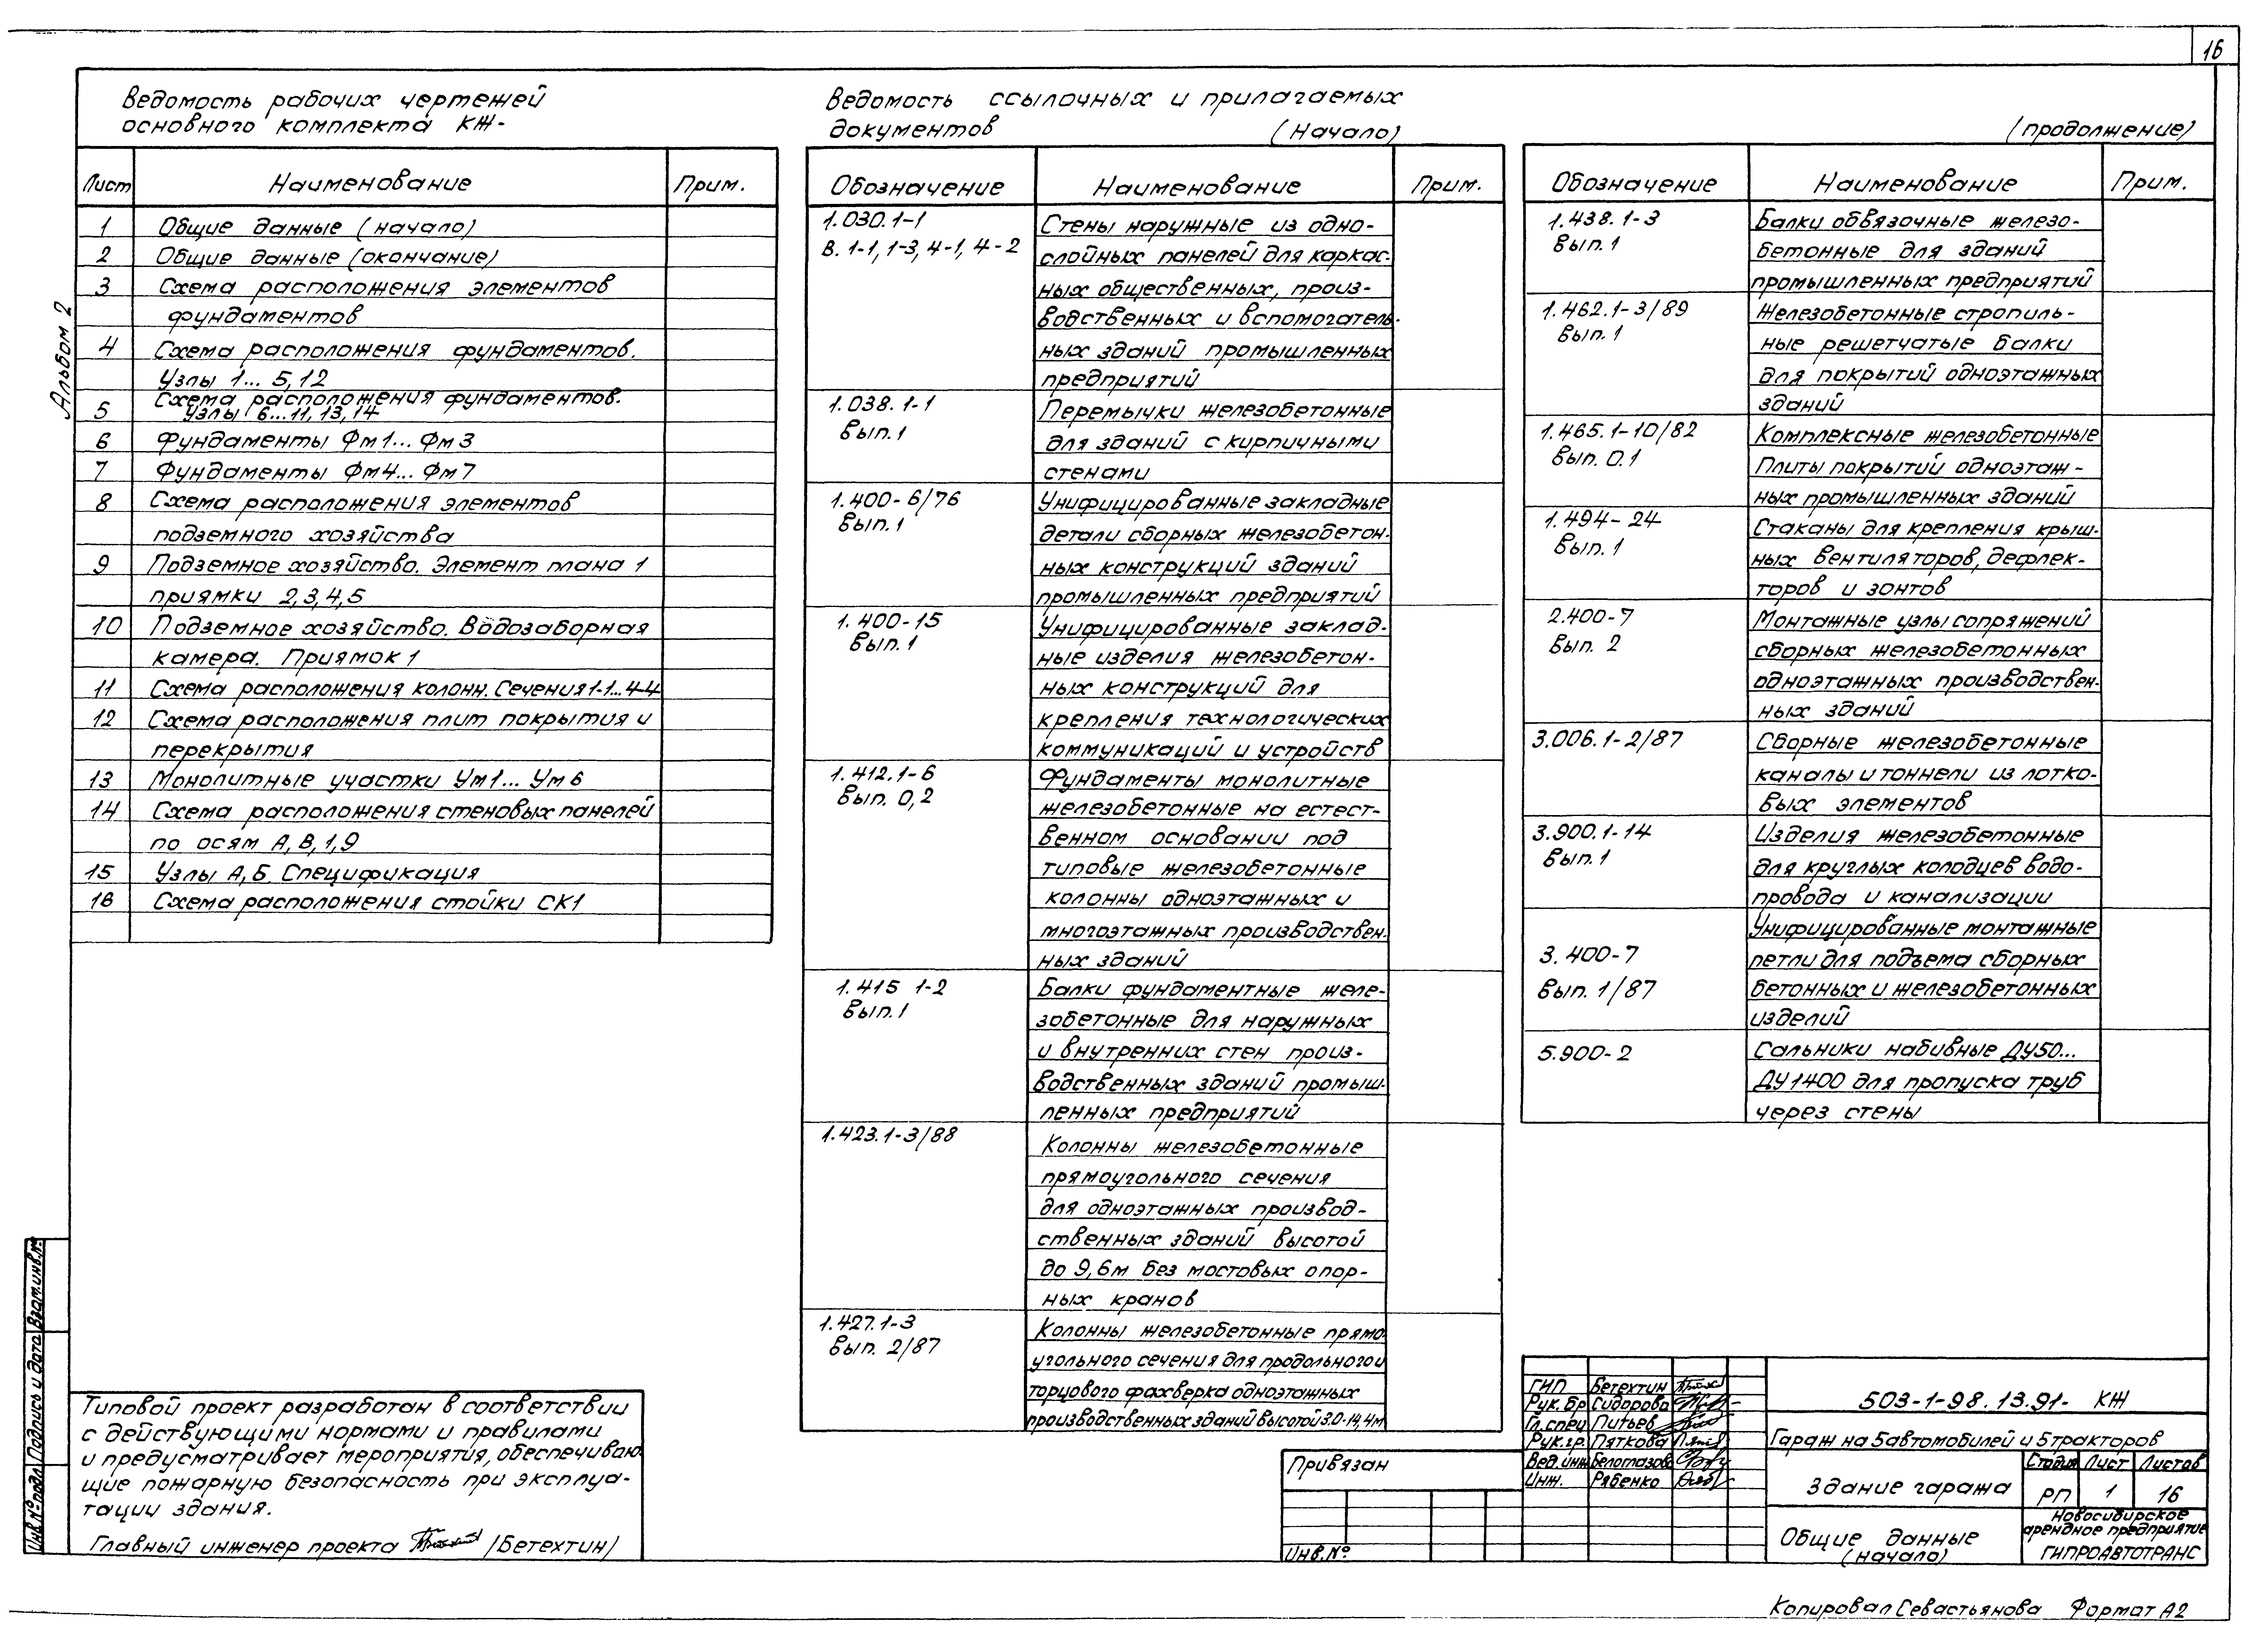 16
Ведомость рабочих чертежей
основного комплекта КЖ-
Лист Наименование Прим.
1 Общие данные (начало)
2 Общие данные (окончание)
3 Схема расположения элементов
фундаментов
4 Схема расположения фундаментов.
Узлы 1... 5,12
5 Схема расположения фундаментов.
Узлы 6...11, 13, 14
6 Фундаменты Фм1... Фм3
7 Фундаменты Фм4... Фм7
8 Схема расположения элементов
подземного хозяйства
9 Подземное хозяйство. Элемент плана 1
приямки 2,3,4,5
10 Подземное хозяйство. Водозаборная
камера. Приямок 1
11 Схема расположения колонн. Сечения 1-1...4-4
12 Схема расположения плит покрытия и
перекрытия
13 Монолитные участки Ум1... Ум6
14 Схема расположения стеновых панелей
по осям А, В, 1,9
15 Узлы А, Б. Спецификация
16 Схема расположения стойки СК1
Альбом 2
Ведомость ссылочных и прилагаемых
документов (начало)
Обозначение Наименование Прим.
1.030.1-1 Стены наружные из одно-
В. 1-1, 1-3, 4-1, 4-2 слойных панелей для каркас-
ных общественных, произ-
водственных и вспомогатель-
ных зданий промышленных
предприятий
1.038.1-1 Перемычки железобетонные
Вып.1 для зданий с кирпичными
стенами
1.400-6/76 Унифицированные закладные
Вып.1 детали сборных железобетон-
ных конструкций зданий
промышленных предприятий
1.400-15 Унифицированные заклад-
Вып.1 ные изделия железобетон-
ных конструкций для
крепления технологических
коммуникаций и устройств
1.412.1-6 Фундаменты монолитные
Вып. 0,2 железобетонные на естест-
венном основании под
типовые железобетонные
колонны одноэтажных и
многоэтажных производствен-
ных зданий
1.415 1-2 Балки фундаментные желе-
Вып.1 зобетонные для наружных
и внутренних стен произ-
водственных зданий промыш-
ленных предприятий
1.423.1-3/88 Колонны железобетонные
прямоугольного сечения
для одноэтажных производ-
ственных зданий высотой
до 9,6м без мостовых опор-
ных кранов
1.427.1-3 Колонны железобетонные прямо
Вып. 2/87 угольного сечения для продольного и
торцового фахверка одноэтажных
производственных зданий высотой 3.0-14,4м
(продолжение)
Обозначение Наименование Прим.
1.438.1-3 Балки обвязочные железо-
Вып.1 бетонные для зданий
промышленных предприятий
1.462.1-3/89 Железобетонные стропиль-
Вып.1 ные решетчатые балки
для покрытий одноэтажных
зданий
1.465.1-10/82 Комплексные железобетонные
Вып. 0.1 Плиты покрытий одноэтаж-
ных промышленных зданий
1.494-24 Стаканы для крепления крыш-
Вып.1 ных вентиляторов, дефлек-
торов и зонтов
2.400-7 Монтажные узлы сопряжений
Вып. 2 сборных железобетонных
одноэтажных производствен-
ных зданий
3.006.1-2/87 Сборные железобетонные
каналы и тоннели из лотко-
вых элементов
3.900.1-14 Изделия железобетонные
Вып.1 для круглых колодцев водо-
провода и канализации
Унифицированные монтажные
3.400-7 петли для подъема сборных
Вып. 1/87 бетонных и железобетонных
изделий
5.900-2 Сальники набивные ДУ50...
ДУ1400 для пропуска труб
через стены
Типовой проект разработан в соответствии
с действующими нормами и правилами
и предусматривает мероприятия, обеспечиваю
щие пожарную безопасность при эксплуа-
тации здания.
Главный инженер проекта /Бетехтин/
Инв.№подл. Подпись и дата Взам.инв.№
Привязан
Инв.№
ГИП Бетехтин
Рук.бр Сидорова
Гл.спец Питьев
Рук.гр. Пяткова
Вед.инж Белоглазова
Инж. Рябенко
503-1-98.13.91- КЖ
Гараж на 5 автомобилей и 5 тракторов
Здание гаража
Стадия Лист Листов
РП 1 16
Общие данные
(начало)
Новосибирское
арендное предприятие
ГИПРОАВТОТРАНС
Копировал Севастьянова Формат А2